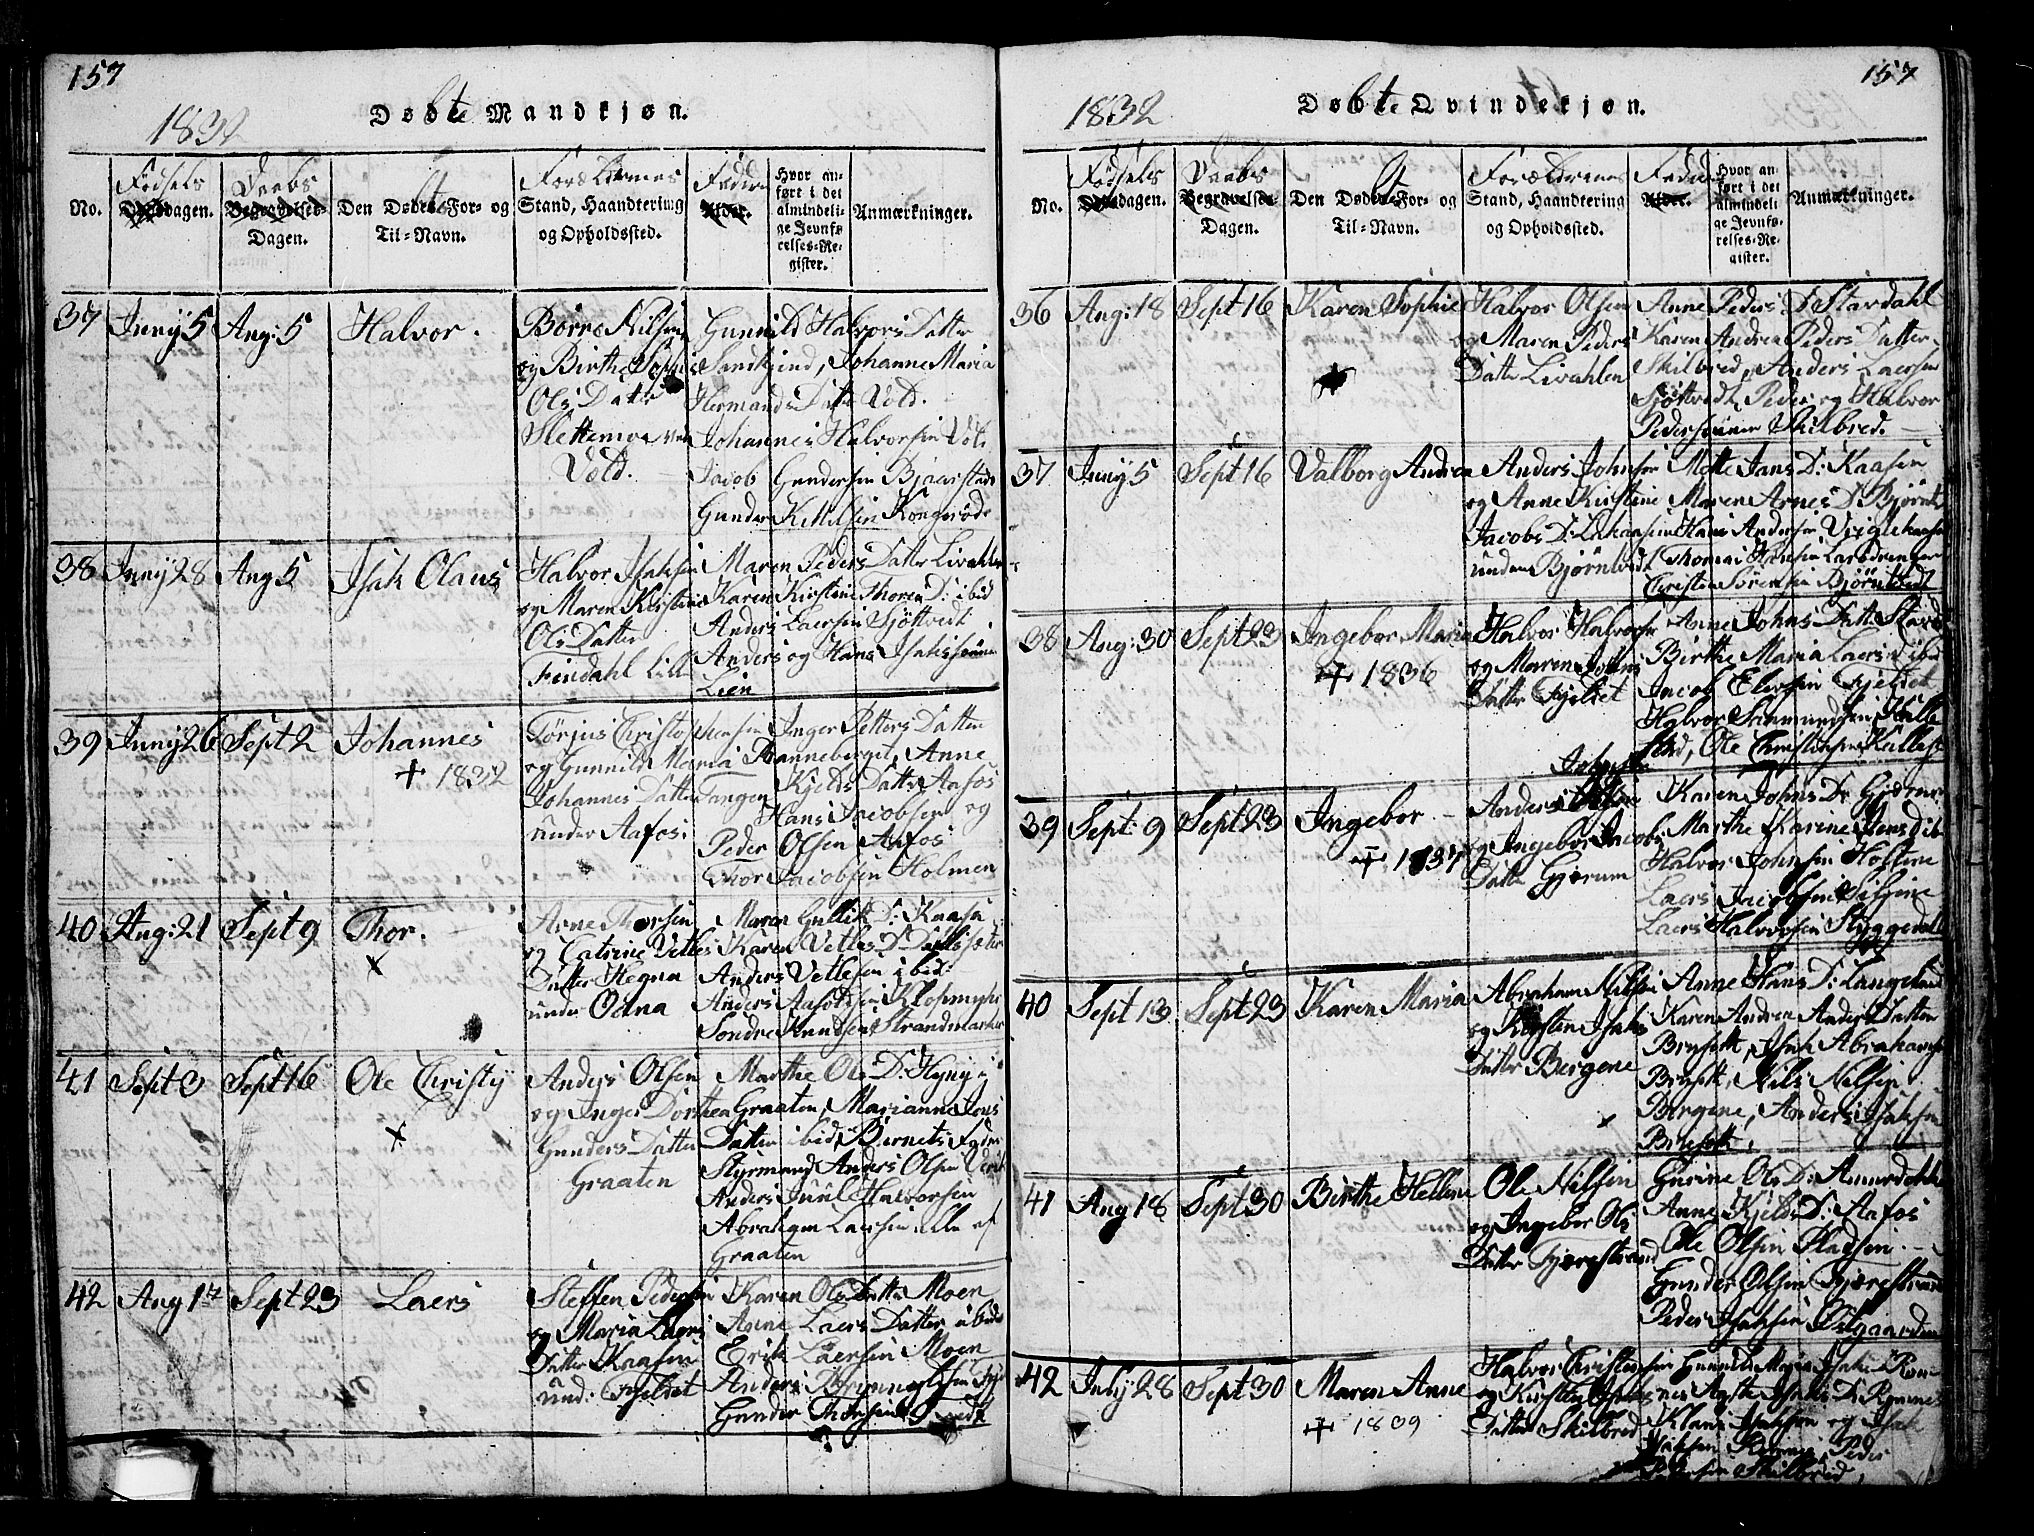 157
1832
Døbte Mandkjøn.
No.
Fødsels dagen.
Daabs Dagen.
Den Døbtes For- og Til-Navn.
Forældrenes Stand, Haandtering og Opholdssted.
Faddere
Hvor anført i det almindelige Jevnførelses-Register.
Anmærkninger.
37 Juny 5 Aug: 5 Halvor.
Børre Nilsen
og Birthe Sophie
Ols Datter
Slettemoe under
Vold.
Gunnild Halvors Datter
Sandkjend, Johanne Maria
Hermands Datter Vold.
Johannes Halvorsen Vold
Jacob Gundersen Bjaarstad
Gunder Kittilsen Kongerød
38 Juny 28 Aug 5 Isak Olaus
Halvor Isaksen
og Maren Kirstine
Ols Datter
Findahl Lille
Maren Peders Datter Livahlen
Karen Kirstine Thoren D: ibid
Anders Laersen Sjøttvedt
Anders og Hans Isakssønner
Lien
39 Juny 26 Sept 2 Johannes
+ 1832
Tørjus Christophersen
og Gunnild Maria
Johannes Datter Tangen
under Aafos:
Inger Petters Datter
Ranneberget, Anne
Kjelds Datter Aafos
Hans Jacobsen og
Peder Olsen Aafos
Thor Jacobsen Holmen
40 Aug: 21 Sept 9 Thor.
x
Arne Thorsen
og Catrine Vetles
Datter Hegna
under Odna
Maren Gullik D: Kaasa
Karen Vetles D:
Anders Vetlesen ibid:
Anders Aasoldsen Klopmyhr
Sondre Knudsen Strandmarker
41 Sept 3 Sept 16 Ole Christy
x
Anders Olsen
og Inger Dorthea
Gunders Datter
Graaten
Marthe Ols D: Hynyi
Graaten, Marianne Jons
Datter ibid,
Styrmand Anders Olsen
Anders Juul Halvorsen
Abraham Laersen alle af
Graaten
42 Aug 17 Sept 23 Laers
Steffen Pedersen
og Maria Laers
Datter Kaasen
und: Fjeldet
Karen Ols Datter Moen
Anne Laers Datter ibid
Erik Laersen Moen
Anders Brynnelsen
Gunder Thorsen
157
1832
Døbte Qvindekjøn.
No.
Fødsels dagen.
Daabs Dagen.
Den Døbtes For- og Til-Navn.
Forældrenes Stand, Haandtering og Opholdssted.
Faddere
Hvor anført i det almindelige Jevnførelses-Register.
Anmærkninger.
36 Aug: 18 Sept 16 Karen Sophie
Halvor Olsen
og Maren Peders
Datter Livahlen
Anne Peders D Stardahl
Karen Andrea Peders Datter
Skilbred, Anders Laersen
Sjøttvedt, Peder og Halvor
Pederssønner Skilbred.
37 Juny 5 Sept 16 Valborg Andrea
Anders Johnsen
og Anne Kirstine
Jacobs D:
under Bjørntvedt
Mette Jans D: Kaasen
Maren Arnes D Bjørntv
Hans Andersen
Thomas Hansen
Christen Sørensen Bjørntvedt
38 Aug: 30 Sept 23 Ingebor Maria
+ 1836
Halvor Halvorsen
og Maren Johns
Datter Fjeldet
Anne Johns Datt Stard
Birthe Maria Laers D ibid
Jacob Elevsen Fjeldet
Halvor Simmundsen Kulle
stad, Ole Christensen Kullest
39 Sept: 9 Sept 23 Ingebor
+ 1837
Johnsen
Anders
og Ingebor Jacobs
Datter Gjerum
Karen Johns Dr Gjerum
Marthe Karine Jens D ib
Halvor Johnsen Holtene
Laers Jacobsen
Laers Halvorsen Styggedal
40 Sept 13 Sept 23 Karen Maria
Abraham Nilsen
og Kirsten Isaks
Datter Bergene
Anne Hans D: Langeland
Karen Andrea Anders Datter
Brusett, Isak Abrahamsen
Brusett, Nils Nilsen
Bergene, Anders Isaksen
Brusett.
41 Aug 18 Sept 30 Birthe Hellene
Ole Nilsen
og Ingebor Ols
Datter Fjærestrand
Gurine Ols D:
Anne Kjelds D: Aafos
Ole Olsen Pladsen
Gunder Olsen Fjærestrand
Peder Isaksen Østgaarden
42 July 28 Sept 30 Maren Anne
+ 1839
Halvor Christensen
og Kirstine
Datter Skilbred
Gunnild Maria Isaks D Rom
nes D: Romnes
Klaus Isaksen og Isak
Isaksen Romnes, Peder
Pedersen Skilbred,